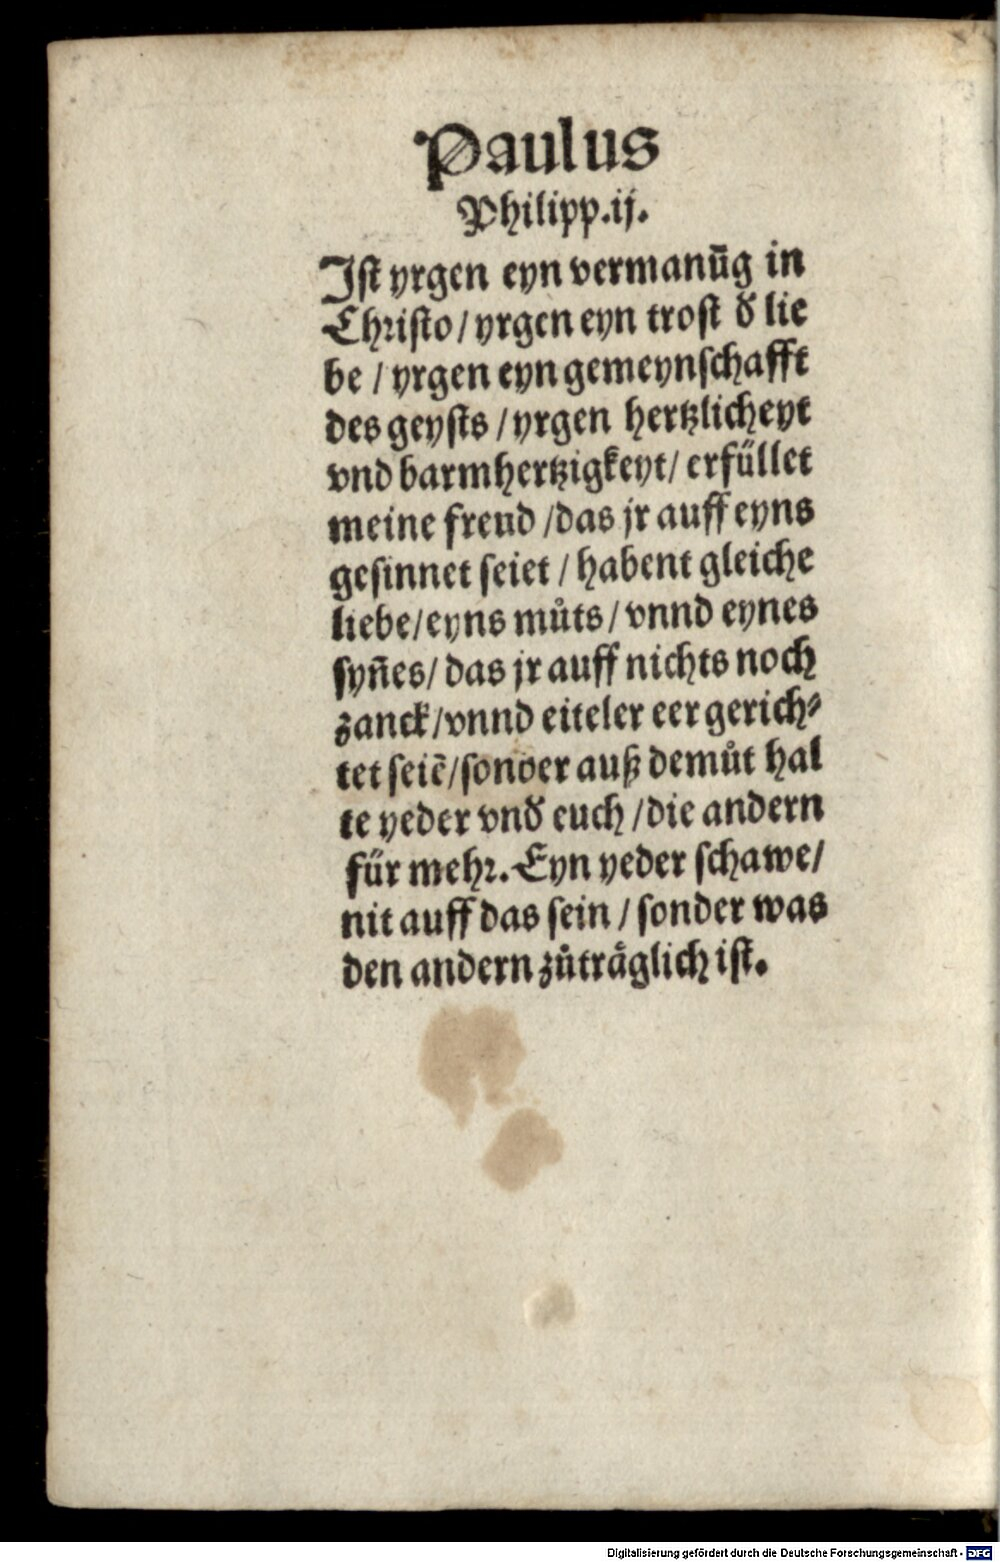 Paulus
Philipp.ij.
Jst yrgen eyn vermanūg in
Christo/yrgen eyn trost ď lie
be / yrgen eyn gemeynschafft
des geysts /yrgen hertzlicheyt
vnd barmhertzigkeyt/ erfüllet
meine freud /das jr auff eyns
gesinnet seiet / habent gleiche
liebe/eyns můts/ vnnd eynes
syn̄es/ das jr auff nichts noch
zanck/vnnd eiteler eer gerich⸗
tet seiē/sonder auß demůt hal
te yeder vnď euch /die andern
für mehr. Eyn yeder schawe/
nit auff das sein / sonder was
den andern zůträglich ist.
Digitalisierung gefördert durch die Deutsche Forschungsgemeinschaft - DFG